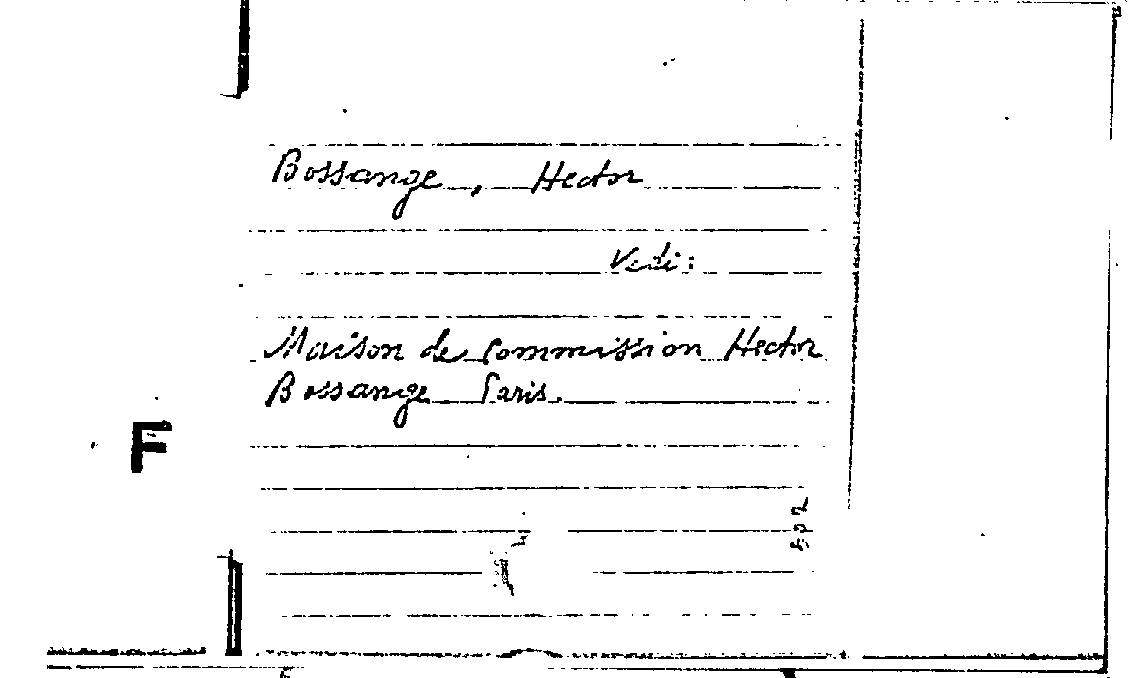 Bossange, Hector
Vedi:
Maison de commission Hector
Bossange Paris.
F